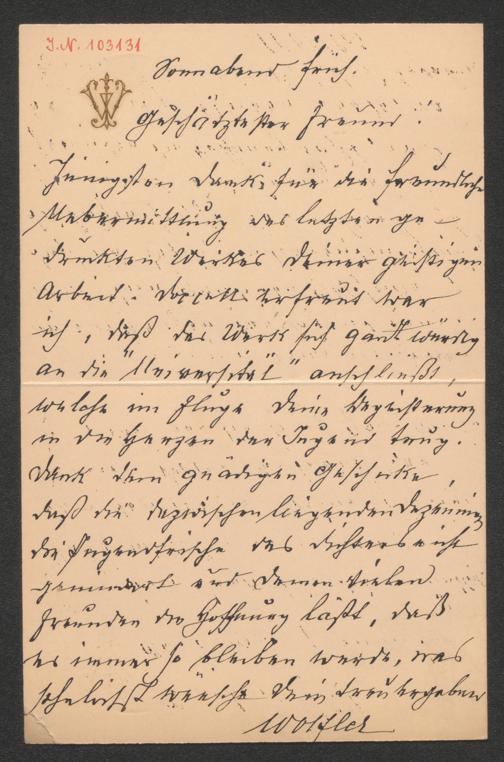 I.N. 103131
Sonnabend früh.
Geschätztester Freund!
Innigsten Dank für die freundliche
Uebermittlung des letzten ge-
druckten Werkes deiner geistigen
Arbeit. Doppelt erfreut war
ich, daß das Werk sich ganz würdig
an die "Universität" anschließt,
welche im Fluge deine Begeisterung
in die Herzen der Jugend trug.
Dank dem gnädigen Geschicke,
daß die dazwischen liegenden Dezennien
die Jugendfrische des Dichters nicht
gemindert und deinen vielen
Freunden die Hoffnung läßt, daß
es immer so bleiben werde, was
sehnlichst wünscht Dein treu ergebener
Wölfler